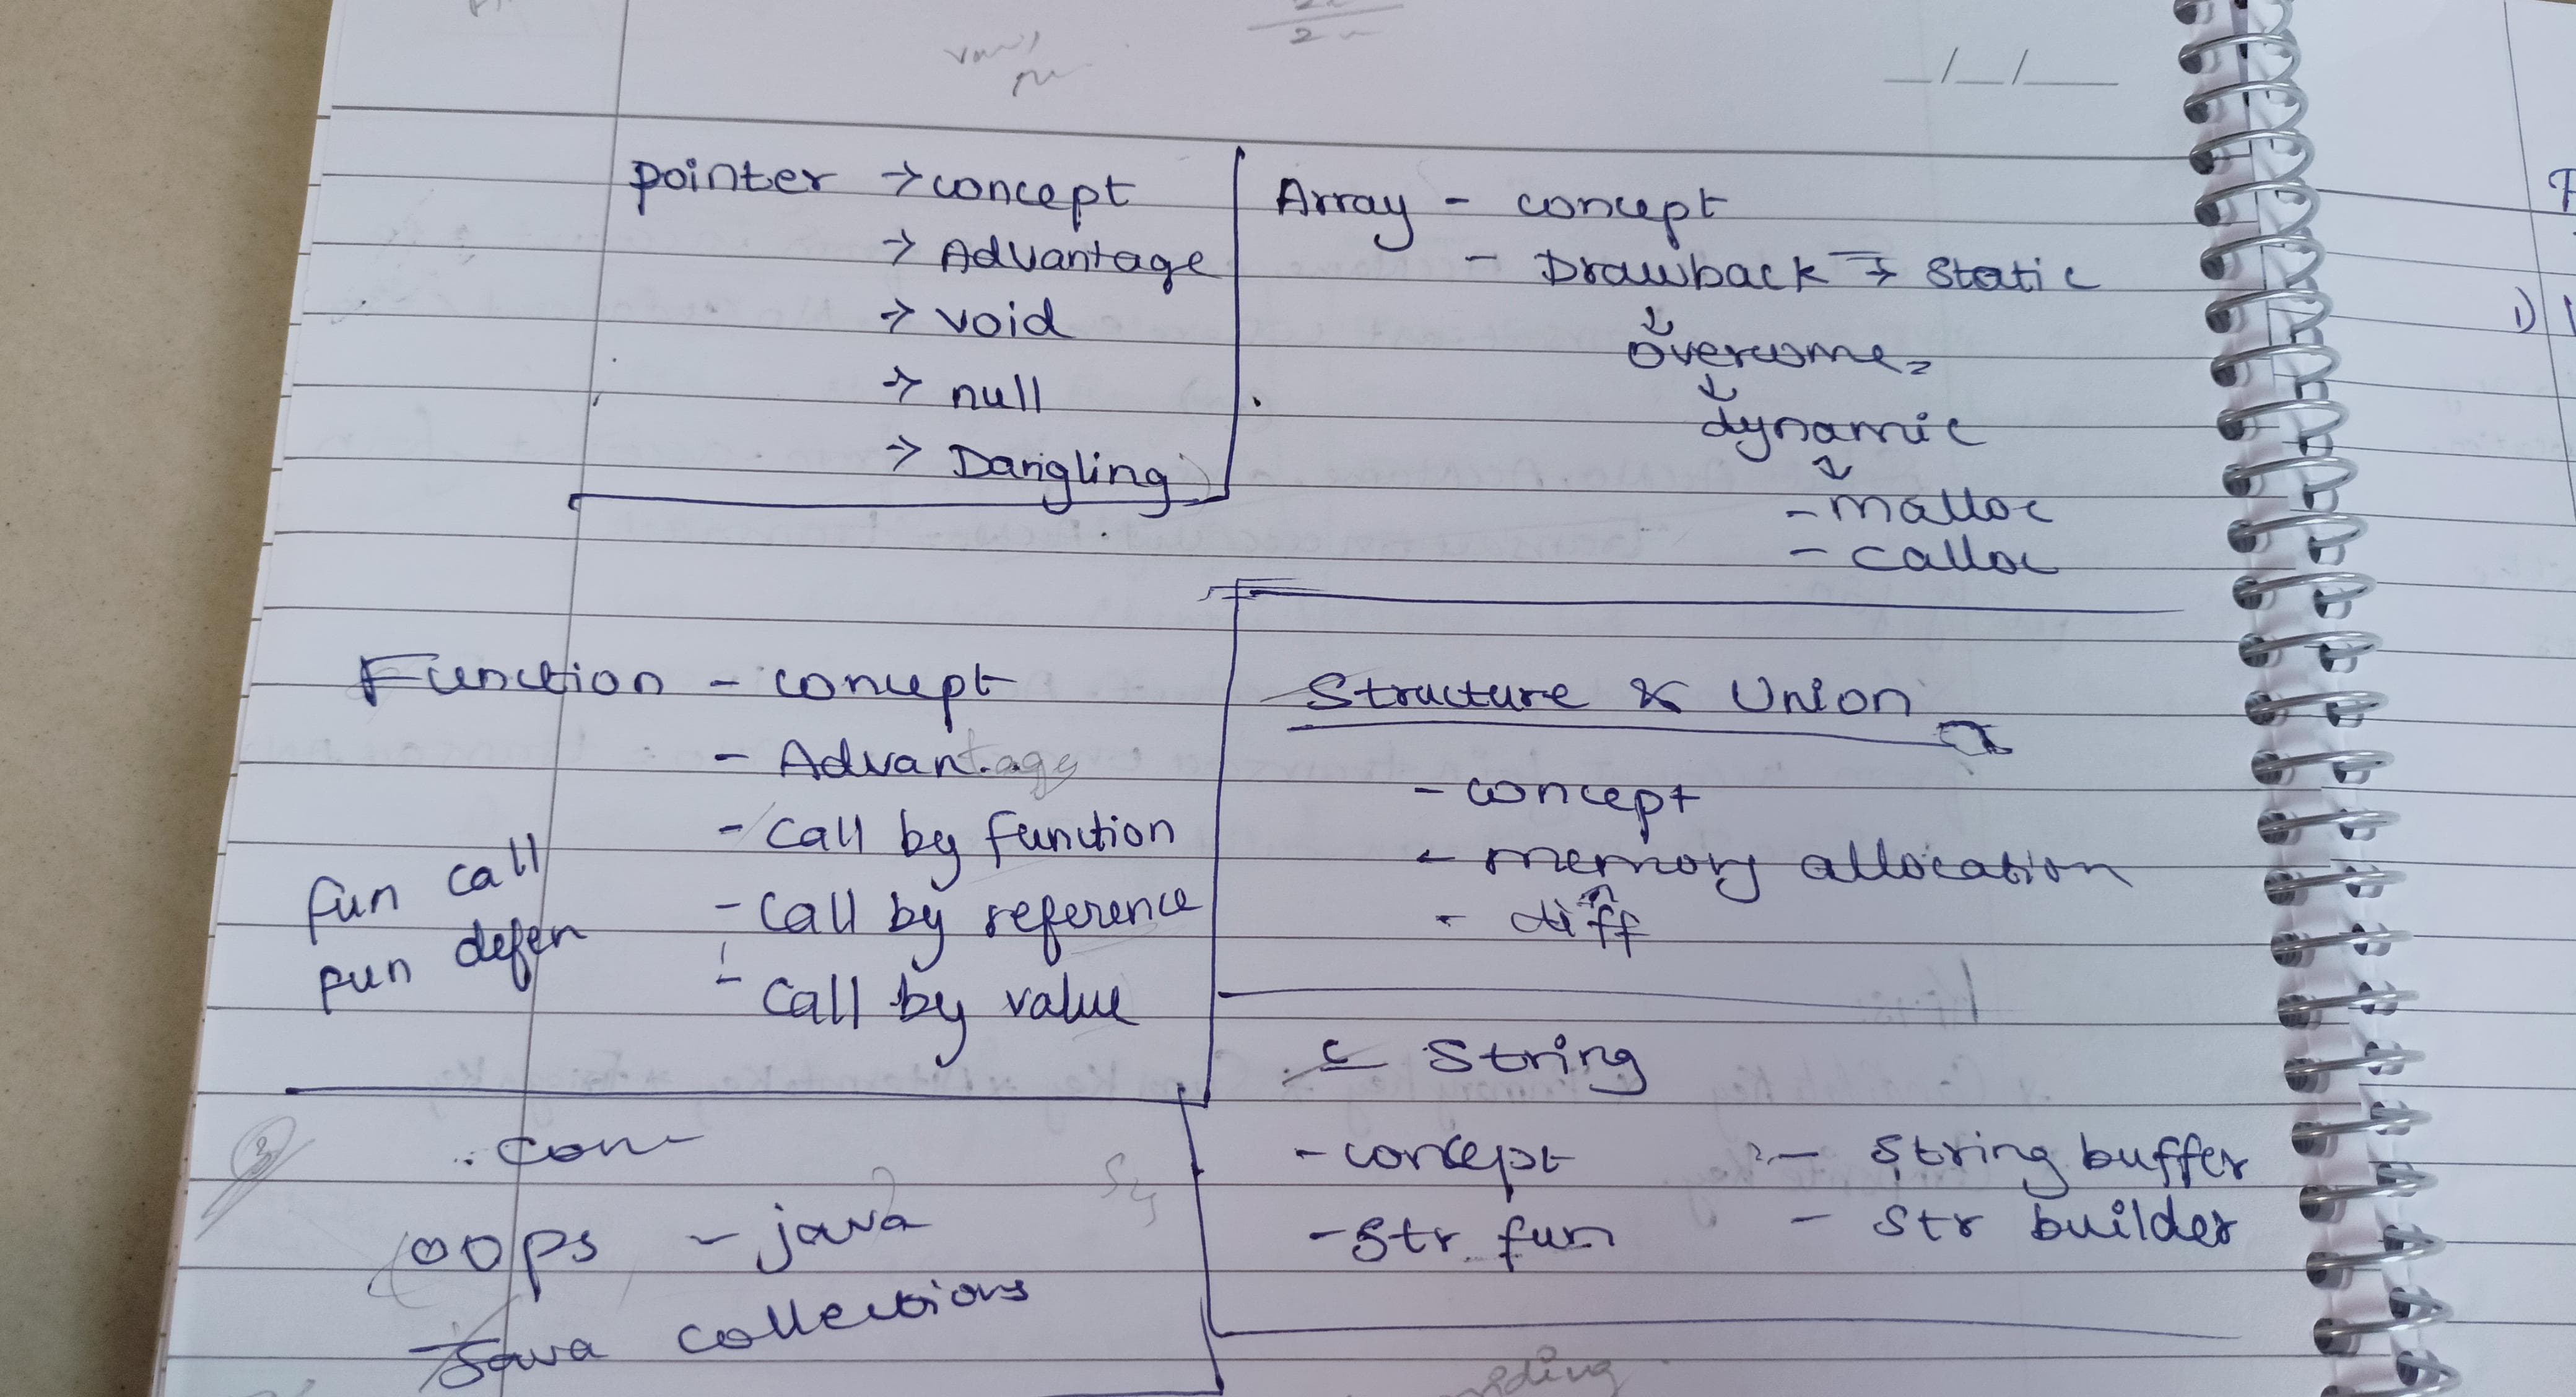 pointer → concept
→ Advantage
→ void
→ null
→ Dangling
Array - concept
- Drawback → Static
↓
overcome
↓
dynamic
↓
- malloc
- calloc
Function - concept
- Advantage
- call by function
- call by reference
- call by value
fun call
fun defen
Structure & Union
- concept
- memory allocation
- diff
C String
- concept
- str fun
- String buffer
- Str builder
con
OOPs - java
Java collections